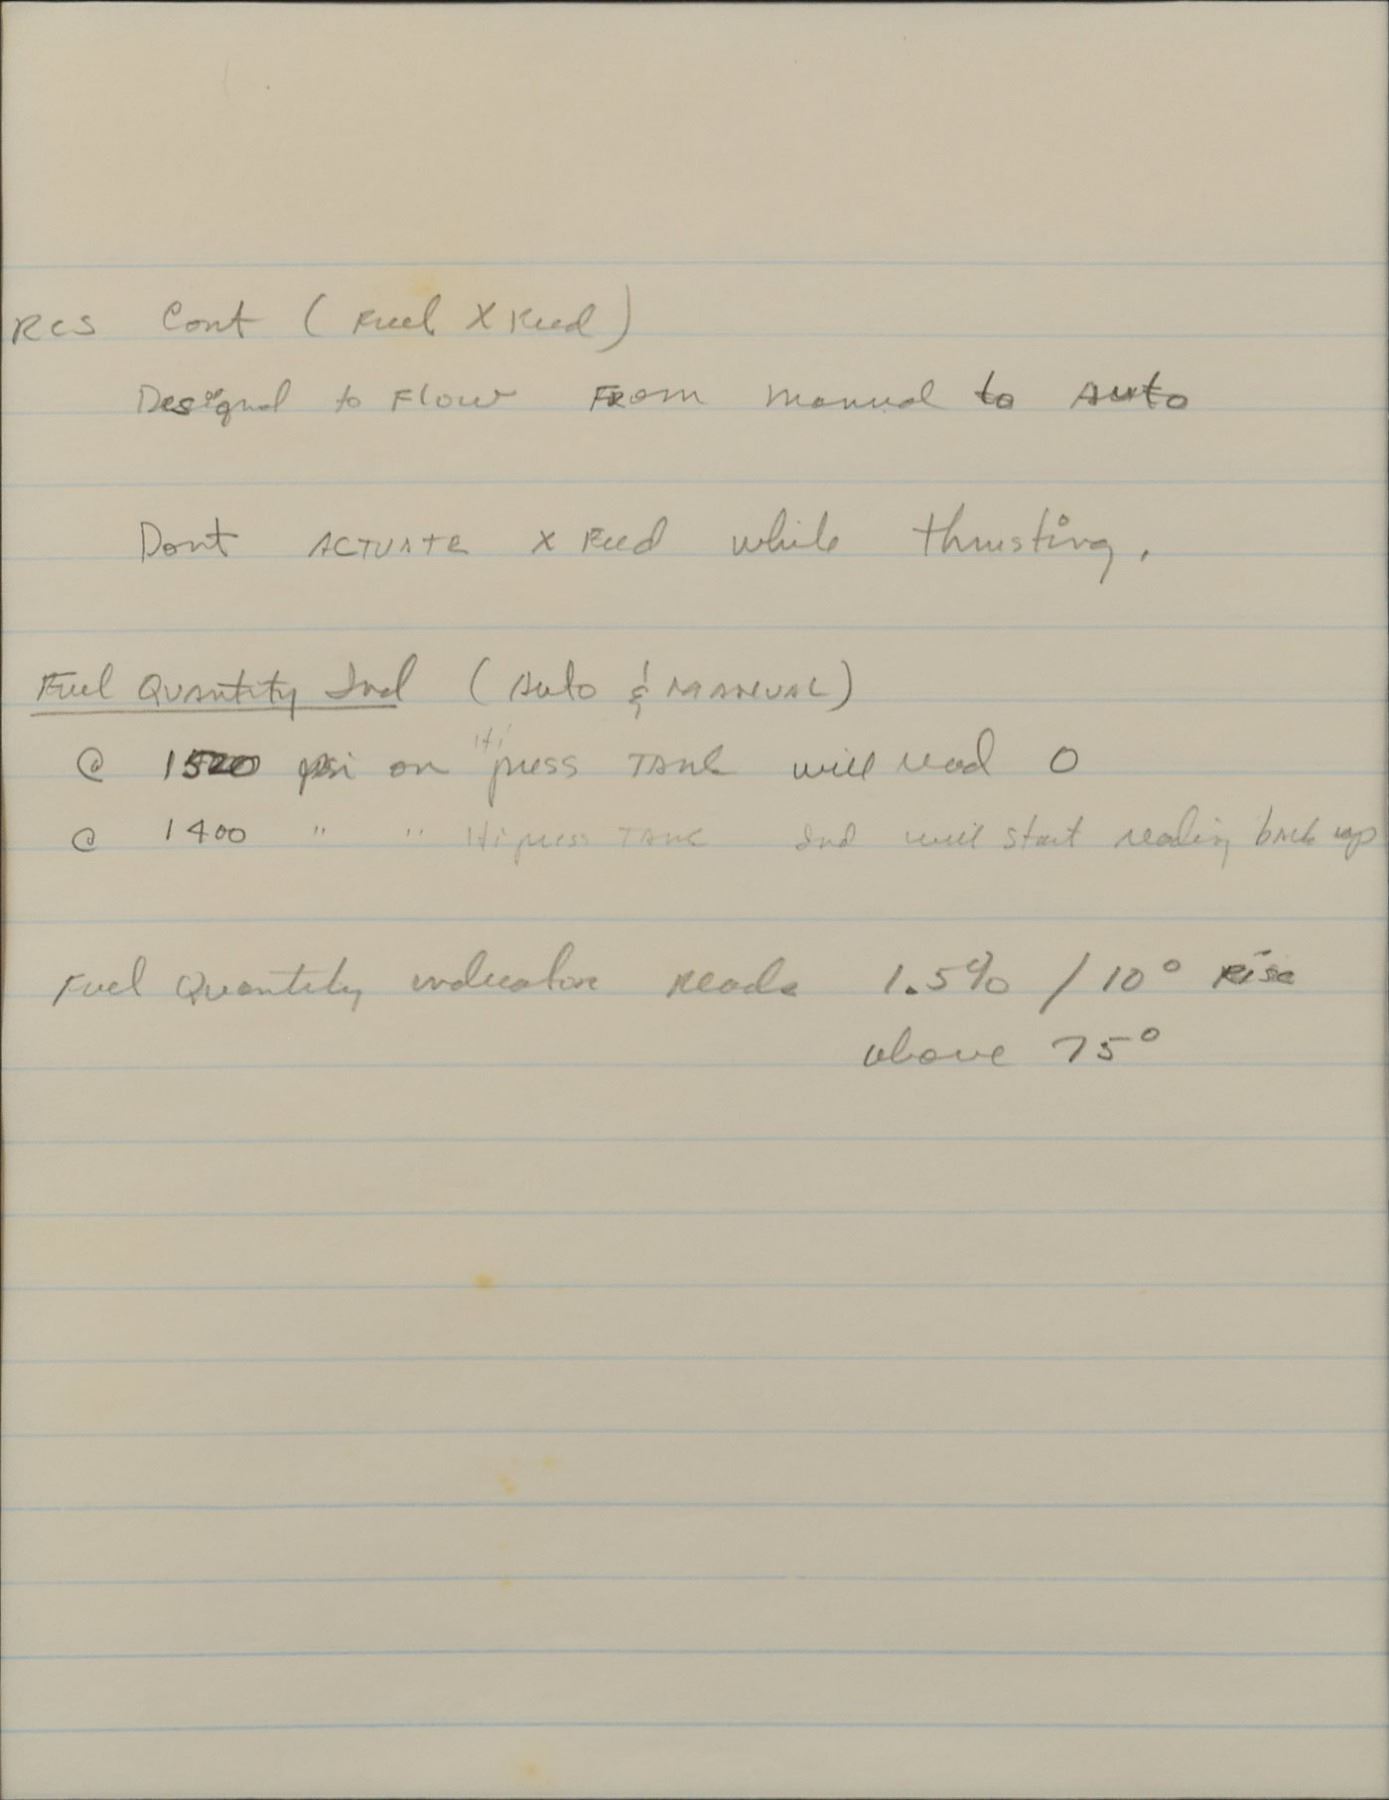 RCS Cont (Fuel X Feed)
Designed to Flow From manual to Auto
Dont ACTUATE X Feed while thrusting.
Fuel Quantity Ind (Auto & MANUAL)
@ psi on Hi press TANK will read 0
@ 1400 " " Hi press TANK Ind will start reading back up
Fuel Quantity indicator Reads 1.5% / 10° Rise
above 75°